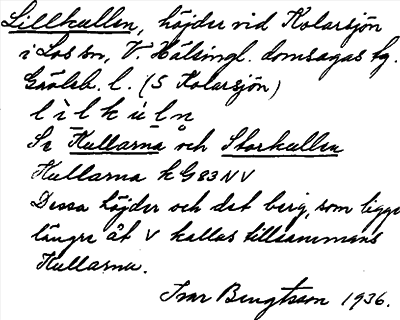 Lillkullen, höjder vid Kolarsjön
i Los sn, V. Hälsingl. domsagas tg.
Gävleb. l. (S Kolarsjön)
l ì l k ú l n̥
Se Kullarna och Storkullen
Kullarna k G 83 N V
Dessa höjder och det berg, som ligge
längre åt V kallas tillsammans
Kullarna.
Ivar Bengtsson 1936.